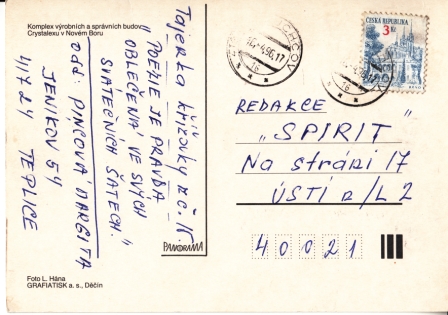 Komplex výrobních a správních budov
Crystalexu v Novém Boru
Tajenka křížovky z č. 15
„POEZIE JE PRAVDA
OBLEČENÁ VE SVÝCH
SVÁTEČNÍCH ŠATECH."
Odd: PINCOVÁ DARGITA
JENÍKOV 54
417 24 TEPLICE
Foto L. Hána
GRAFIATISK a. s., Děčín
PANORAMA
ČESKÁ REPUBLIKA
3 Kč
BRNO
REDAKCE
„SPIRIT"
Na stráni 17
ÚSTÍ n/L 2
40021